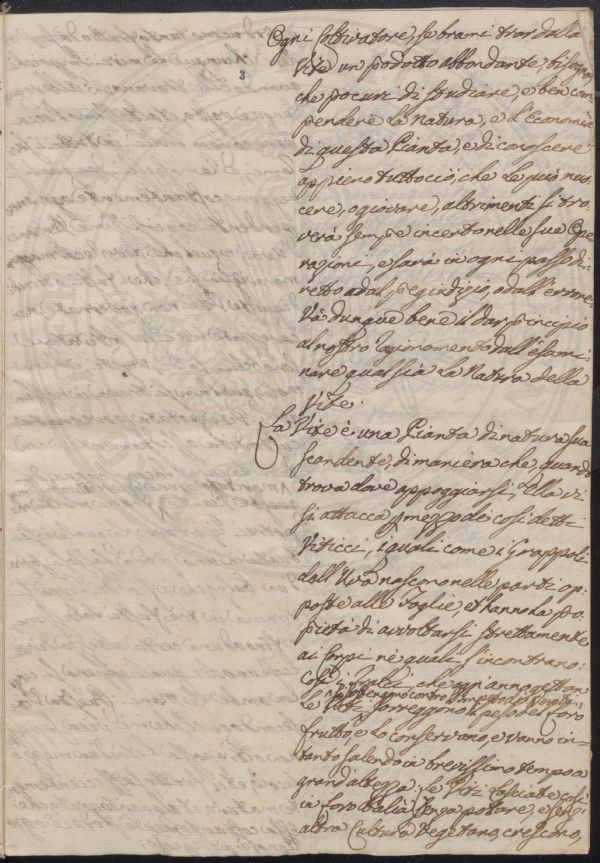 3
Ogni Coltivatore, se brami trar dalla
Vite un podotto abbondante, bisogna
che pocuri di studiare, e ben com
pendere la Natura, e l'Economia
di questa Pianta, e di conoscere
appieno tuttociò, che le può nuo
cere, o giovare, altrimenti si tro
verà sempe incerto nelle sue Ope
razioni, e sarà in ogni passo di
retto o dal pegiudizio, o dall'errore.
Và dunque bene il dar pincipio
al nostro Ragionamento dall'esami
nare qual sia la Natura della
Vite.
La Vite è una Pianta di natura sua
scandente, di maniera che, quando
trova dove appoggiarsi, Ella vi
si attacca p mezzo dei così detti
Viticci, i quali come i Grappoli
dell'Uva nascono nelle parti op
poste alle Foglie, et hanno la po
pietà di avvoltarsi strettamente
ai Corpi nè quali s'incontrano:
così i Tralci che ogn'anno gettan
le Viti sorreggono il peso dei loro
frutto, e lo conservano, e vanno in
tanto salendo in brevissimo tempo a
grand'altezza: le Viti lasciate così
in loro balìa senza potare, e senz'
altra Cultura vegetano, crescono,